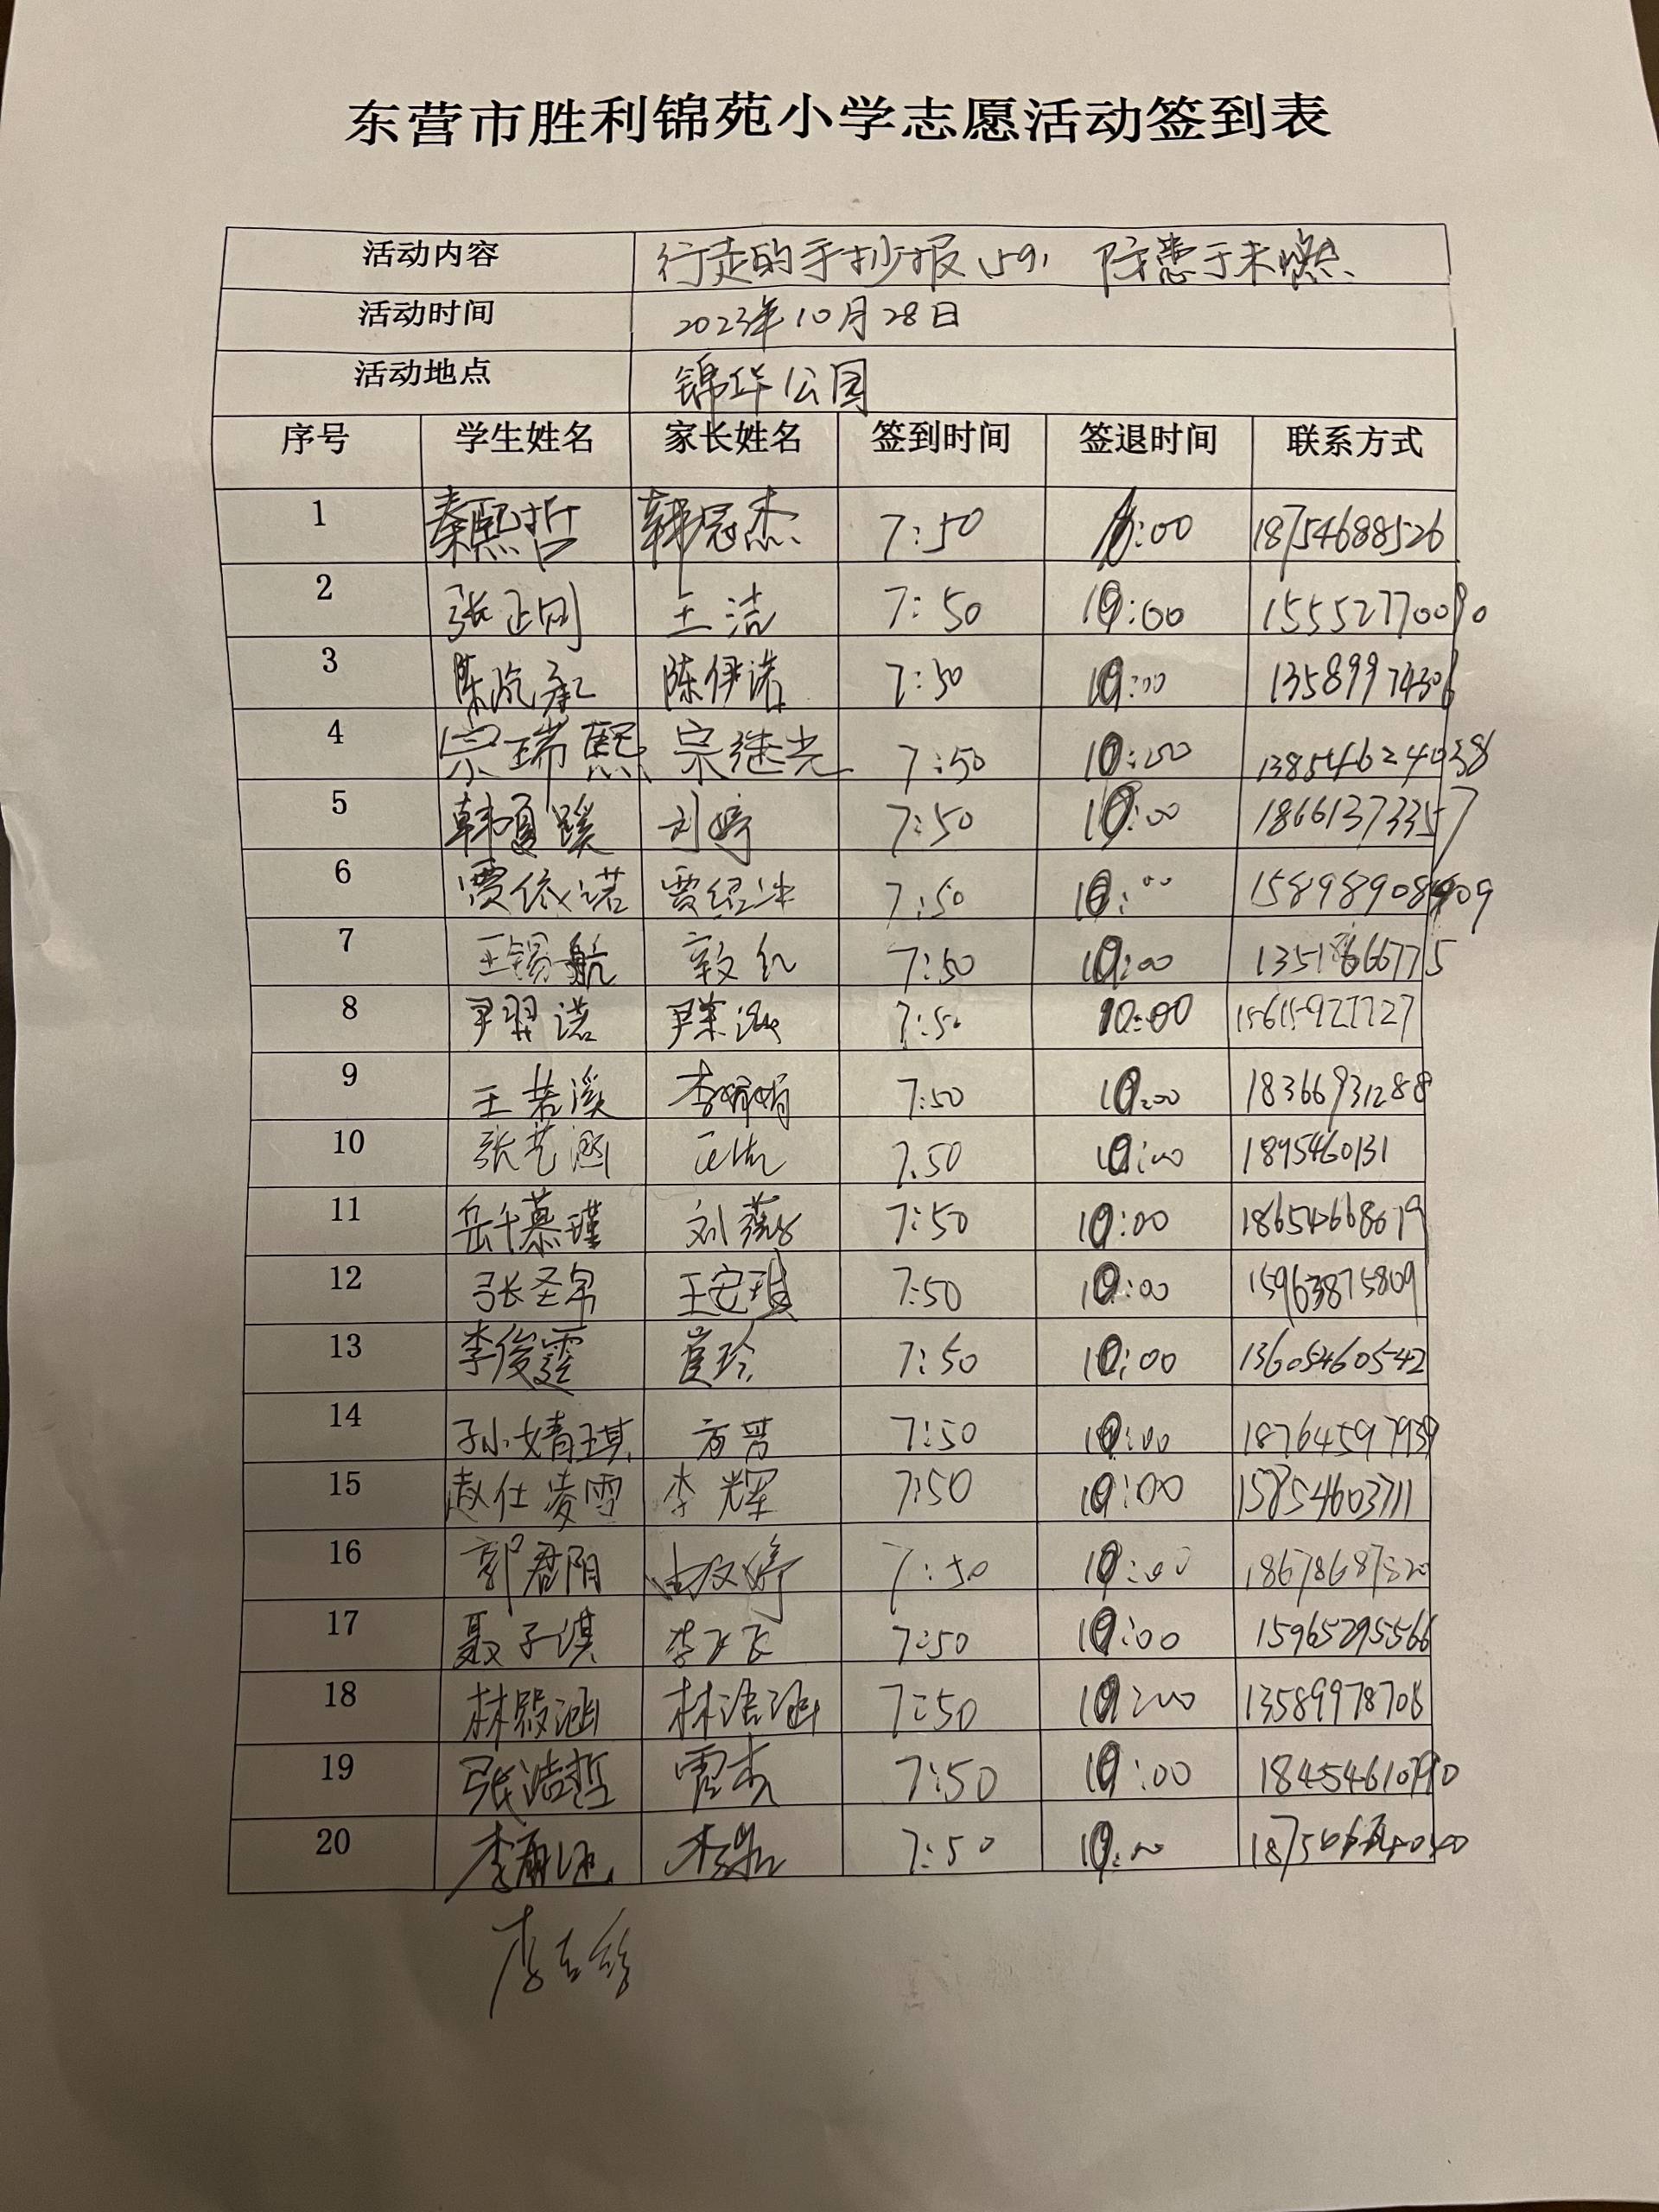 东营市胜利锦苑小学志愿活动签到表
活动内容 行走的手抄报 防患于未燃
活动时间 2023年10月28日
活动地点 锦华公园
序号 学生姓名 家长姓名 签到时间 签退时间 联系方式
1 秦熙哲 韩冠杰 7:50 10:00 18754688526
2 张正则 王洁 7:50 10:00 15552770090
3 陈汽承 陈伊诺 7:50 10:00 13589974306
4 宗瑞熙 宗继光 7:50 10:00 13854624038
5 韩夏蹊 刘婷 7:50 10:00 18661373357
6 贾依诺 贾绍冰 7:50 10:00 15898908409
7 王锡航 7:50 10:00
8 尹羿诺 7:50 10:00 15615927727
9 王若溪 李娟娟 7:50 10:00 18366931288
10 张艺涵 7:50 10:00 1895460131
11 岳千慕瑾 刘燕 7:50 10:00 18654668679
12 张圣帛 王安琪 7:50 10:00 15963875809
13 李俊霆 崔玲 7:50 10:00 13605460542
14 孙婧琪 方芳 7:50 10:00 18764597939
15 赵仕凌雪 李辉 7:50 10:00 15854603711
16 郭君阳 7:50 10:00 18678687820
17 聂子淇 李飞飞 7:50 10:00 15965295566
18 林毅涵 林浩涵 7:50 10:00 13589978708
19 张浩哲 贾杰 7:50 10:00 18454610790
20 7:50 10:00